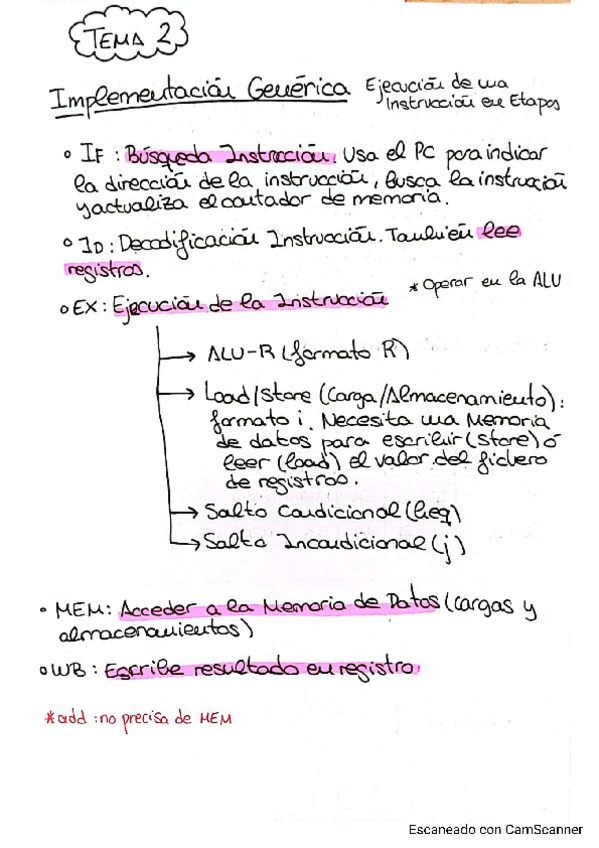 TEMA 2
Implementación Genérica Ejecución de una
Instrucción en Etapas
◦ IF : Búsqueda Instrucción. Usa el PC para indicar
la dirección de la instrucción, busca la instrucción
y actualiza el contador de memoria.
◦ ID: Decodificación Instrucción. También lee
registros.
* Operar en la ALU
◦ EX: Ejecución de la Instrucción
→ ALU-R (formato R)
→ Load/Store (Carga/Almacenamiento):
formato i. Necesita una Memoria
de datos para escribir (store) ó
leer (load) el valor del fichero
de registros.
→ Salto Condicional (beq)
→ Salto Incondicional (j)
• MEM: Acceder a la Memoria de Datos (cargas y
almacenamientos)
◦ WB : Escribe resultado en registro.
* add : no precisa de MEM
Escaneado con CamScanner